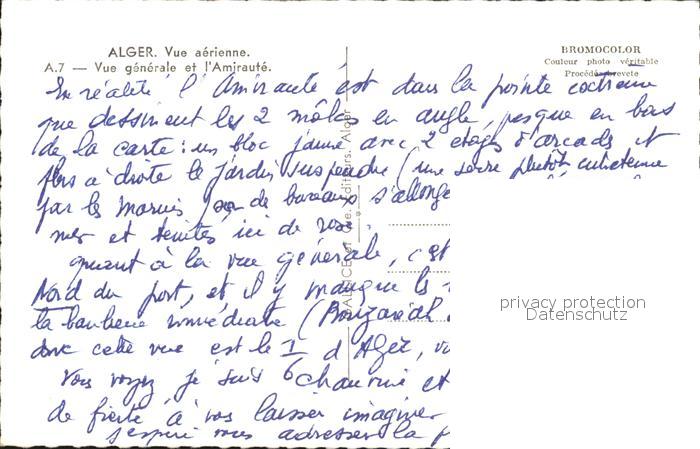 ALGER. Vue aérienne.
A.7 — Vue générale et l'Amirauté.
BROMOCOLOR
Couleur photo véritable
Procédé breveté
En réalité l'Amirauté est dans la pointe extrême
que dessinent les 2 môles en angle, presque en bas
de la carte : un bloc jaune avec 2 étages d'arcades et
plus à droite le jardin suspendu (une serre plutôt entretenue
par les marins) de bureaux s'allonge
mer et teintés ici de rose.
quant à la vue générale, c'est
Nord du port, et il y manque les
la banlieue immédiate (Bouzaréah
donc cette vue est le 1/6 d'Alger,
Vous voyez je suis chauvine et
de fierté à vos laisser imaginer
J'espère vous adresser la
Editeurs. Alger
privacy protection
Datenschutz